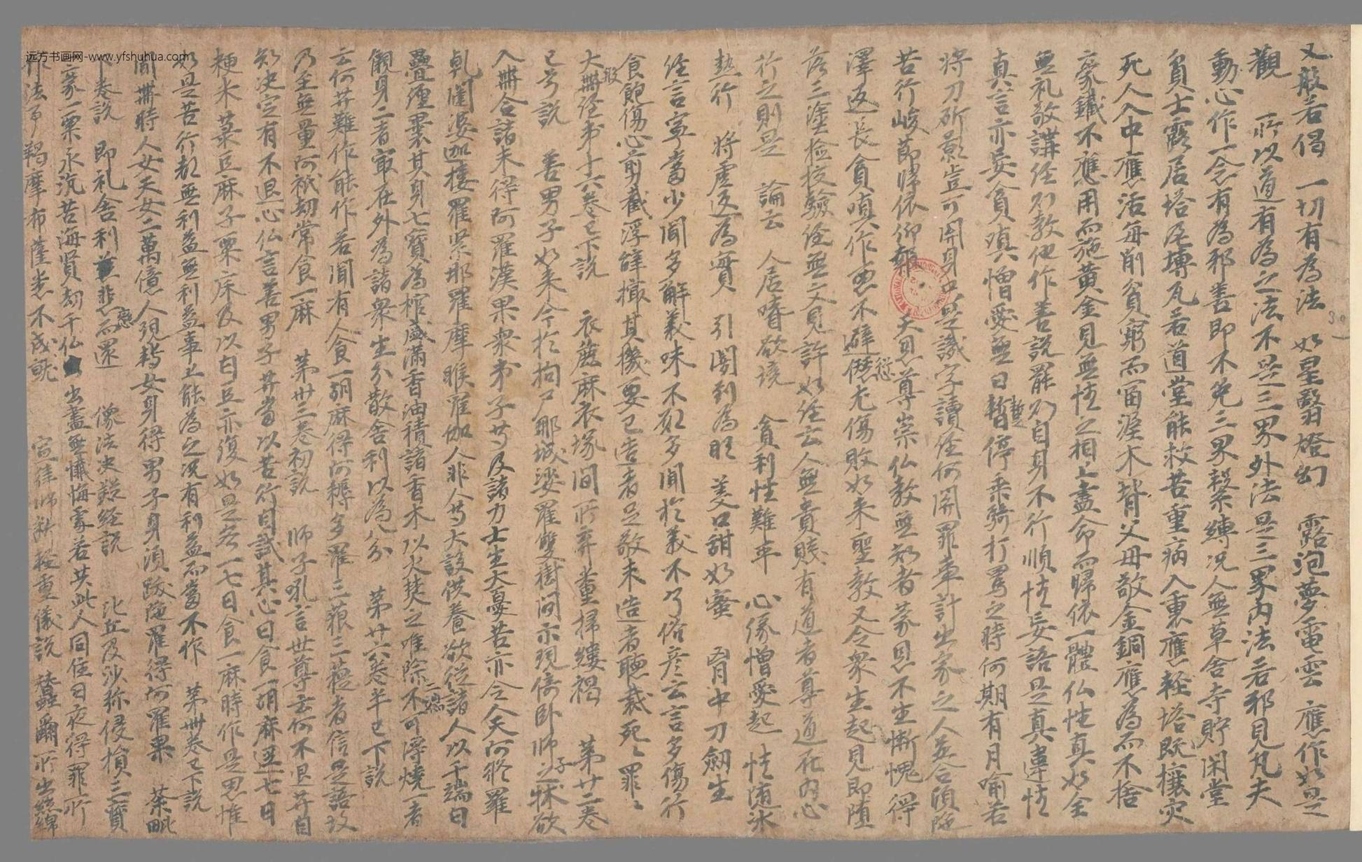 又般若偈 一切有為法 如星翳燈幻 露泡夢電雲 應作如是
觀 所以道有為之法不是三界外法是三界內法若邪見凡夫
動心作一念有為邪善即不免三界繫縛況人無草舍寺貯閑堂
貧士露居塔尾塼瓦若道堂能救苦重病入裏應輕塔既攘灾
死人入中應活每削貧窮而畐渥木背父母敬金銅應為而不捨
豪鐵不應用而施黃金見無性之相上盡命而歸依一體仏性真如全
無礼敬講經則教他作善說罷乃自身不行順情妄語是真違情
真言亦妄貪嗔憎愛無日暫停乘騎打罵之時何期有月喻若
將刀所影豈可開身口呈議字讀經何開罪牽計出家之人並合頭陁
苦行峻節歸依仰 天見尊崇仏教無知者蒙恩不生慚愧得
澤返長貪嗔作惡不礔 尤傷敗如來聖教又令衆生起見即墮
落三塗撿挍驗經無文見許如經云人無貴賤有道者尊道在內心
行之則是 論云 人居嗜欲境 貪利性難平 心緣憎愛起 性随冰
熱行 將虛返為實 引闇到為明 美口甜如蜜 胷中刀劒生
經言寧當少聞多解義味不和多聞於義不了俗彥云言多傷行
食飽傷心剪截浮辭撮其機要已造者是敬未造者聽裁死〻罪〻
大般涅槃十六卷已下說 衣麁麻衣塚間所弃董掃縷褐 第廿一卷
已号說 善男子如來今於拘尸那城娑羅雙樹間示現倚卧師子之牀欲
入涅槃令諸未得阿羅漢果衆弟子等及諸力士生大憂苦亦令人天阿脩羅
乹闥婆迦樓羅緊那羅摩睺羅伽人非人等大設供養欲從諸人以千端㲲
疊纏褁其身七寶為棺盛滿香油積諸香木以火焚之唯除二端不可得燒一者
儭身二者㝡在外為諸衆生分散舍利以為八分 第廿六卷半已下說
云何菩薩難作能作若聞有人食一胡麻得阿耨多羅三藐三菩提者信是語故
乃至無量阿祇劫常食一麻 第卅三卷初說 師子吼言世尊云何不退菩薩自
知決定有不退心仏言善男子菩薩當以苦行自試其心日食一胡麻至七日
粳米菉豆麻子粟床及以白豆亦復如是若一七日食一麻時作是思惟
如是苦行都無利益無利益事上能為之况有利益而當不作 第卅卷已下說
聞涅槃時人女天女二萬億人現轉女身得男子身湏跋陁羅得阿羅果 茶毗
卷說 即礼舍利並悲戀而還 像法決疑經說 比丘及沙弥侵損三寶
一豪一栗永沉苦海賢劫千仏出盡無懺悔處若共此人同住日夜得罪所
作法事羯摩布薩悉不成就 宣律師新輕重儀說 蠶爾所出綿
远方书画网-www.yfshuhua.com